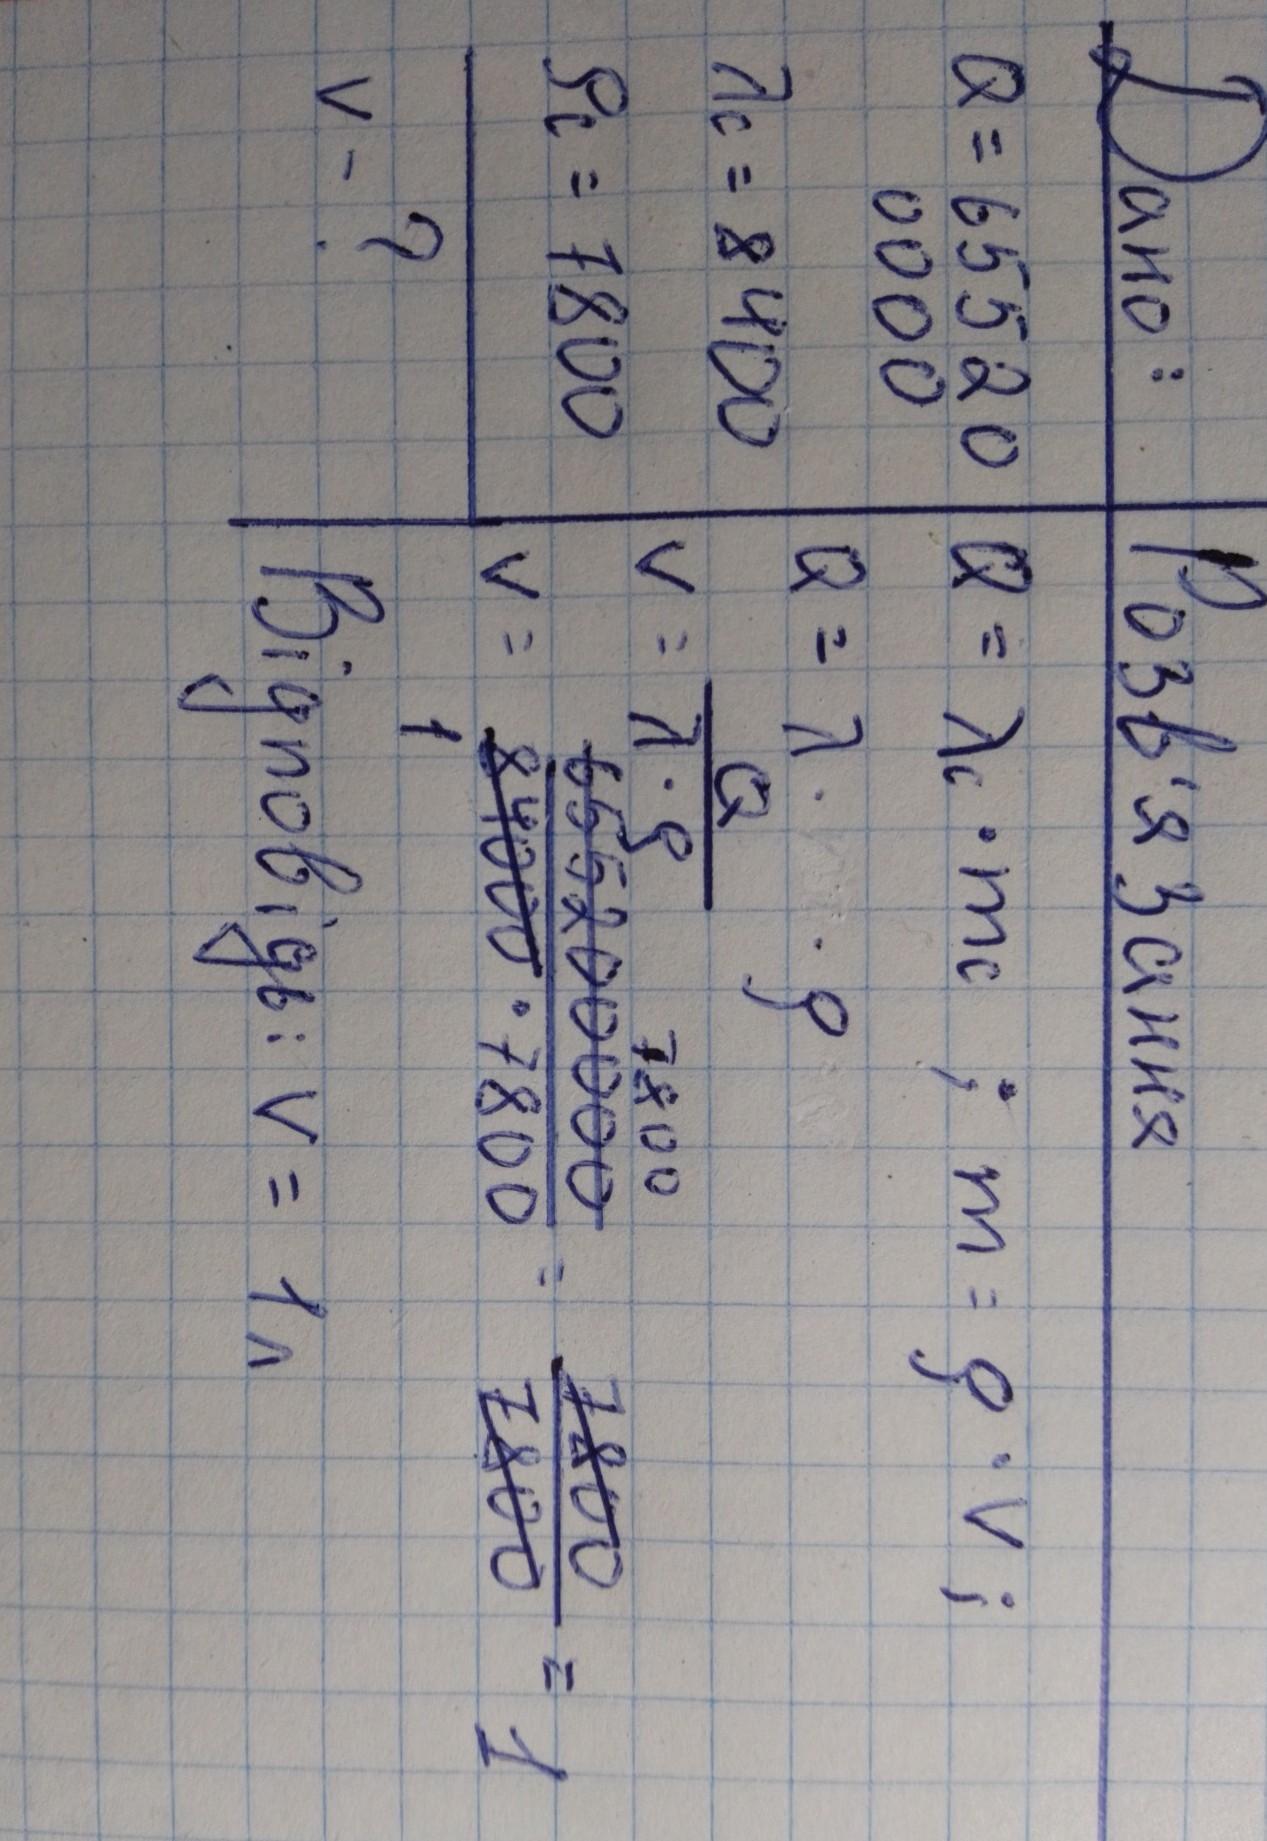 Дано:
Q = 65520
0000
λc = 8400
ρc = 7800
V - ?
Розв'язання
Q = λc · mc ; m = ρ · V ;
Q = λ · · ρ
V = Q / λ · ρ
7800
V = 655200000 / 84000 · 7800 = 7800 / 7800 = 1
1
Відповідь: V = 1 л